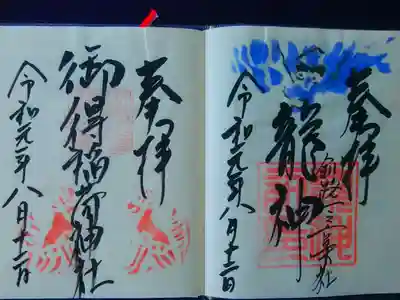 奉拝
龍神
令和元年八月十二日
奉拝
御得稲荷神社
令和元年八月十二日